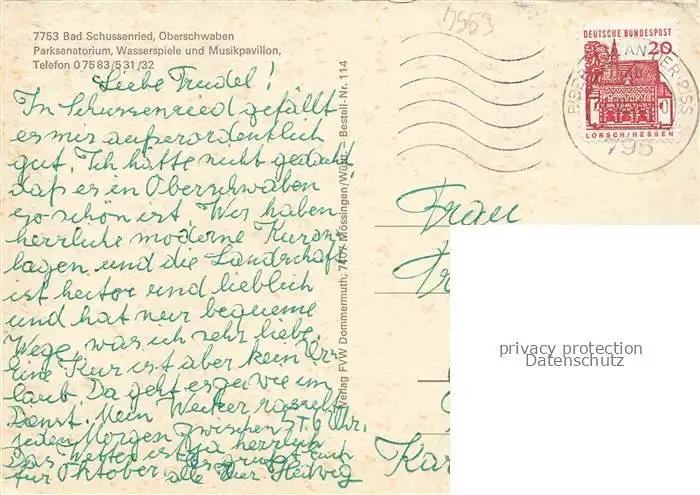 7753 Bad Schussenried, Oberschwaben
Parksanatorium, Wasserspiele und Musikpavillon,
Telefon 0 75 83 / 5 31 / 32
Liebe Trudel!
In Schussenried gefällt
es mir außerordentlich
gut. Ich hätte nicht gedacht,
daß es in Oberschwaben
so schön ist. Wir haben
herrliche moderne Kuran-
lagen, und die Landschaft
ist heiter und lieblich
und hat nur bequeme
Wege, was ich sehr liebe.
Eine Kur ist aber kein Ur-
laub. Da geht es zu wie im
Dienst. Mein Wecker rasselt
jeden Morgen zwischen 5 + 6 Uhr.
Das Wetter ist ja herrlich
für Oktober. Es grüßt euch
alle Eure Hedwig
Verlag FVW Dommermuth, 7407 Mössingen/Württ. Bestell-Nr. 114
7953
DEUTSCHE BUNDESPOST
20
LORSCH/HESSEN
BIBERACH AN DER RISS
795
Frau
Kar
privacy protection
Datenschutz